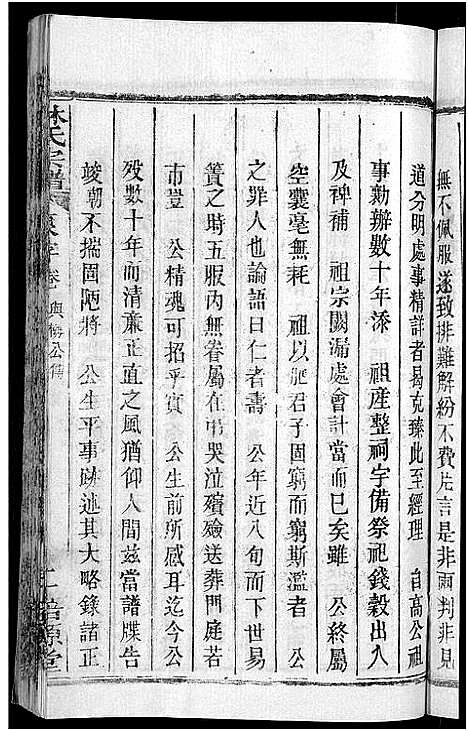 無不佩服遂致排難解紛不費片言是非兩判非見
道分明處事精詳者曷克臻此至經理　自高公祖
事勤辦數十年添　祖產整祠宇備祭祀錢穀出入
及裨補　祖宗闕漏處會計當而已矣雖　公終屬
空囊毫無耗　祖以肥君子固窮而窮斯濫者　公
之罪人也論語曰仁者壽　公年近八旬而下世易
簀之時五服內無眷屬在弔哭泣殯殮送葬門庭若
市豈　公精魂可招乎實　公生前所感耳迄今公
歿數十年而清廉正直之風猶仰人間茲當譜牒告
竣朝不揣固陋將　公生平事跡述其大略錄諸正
林氏宗譜　卷　公傳